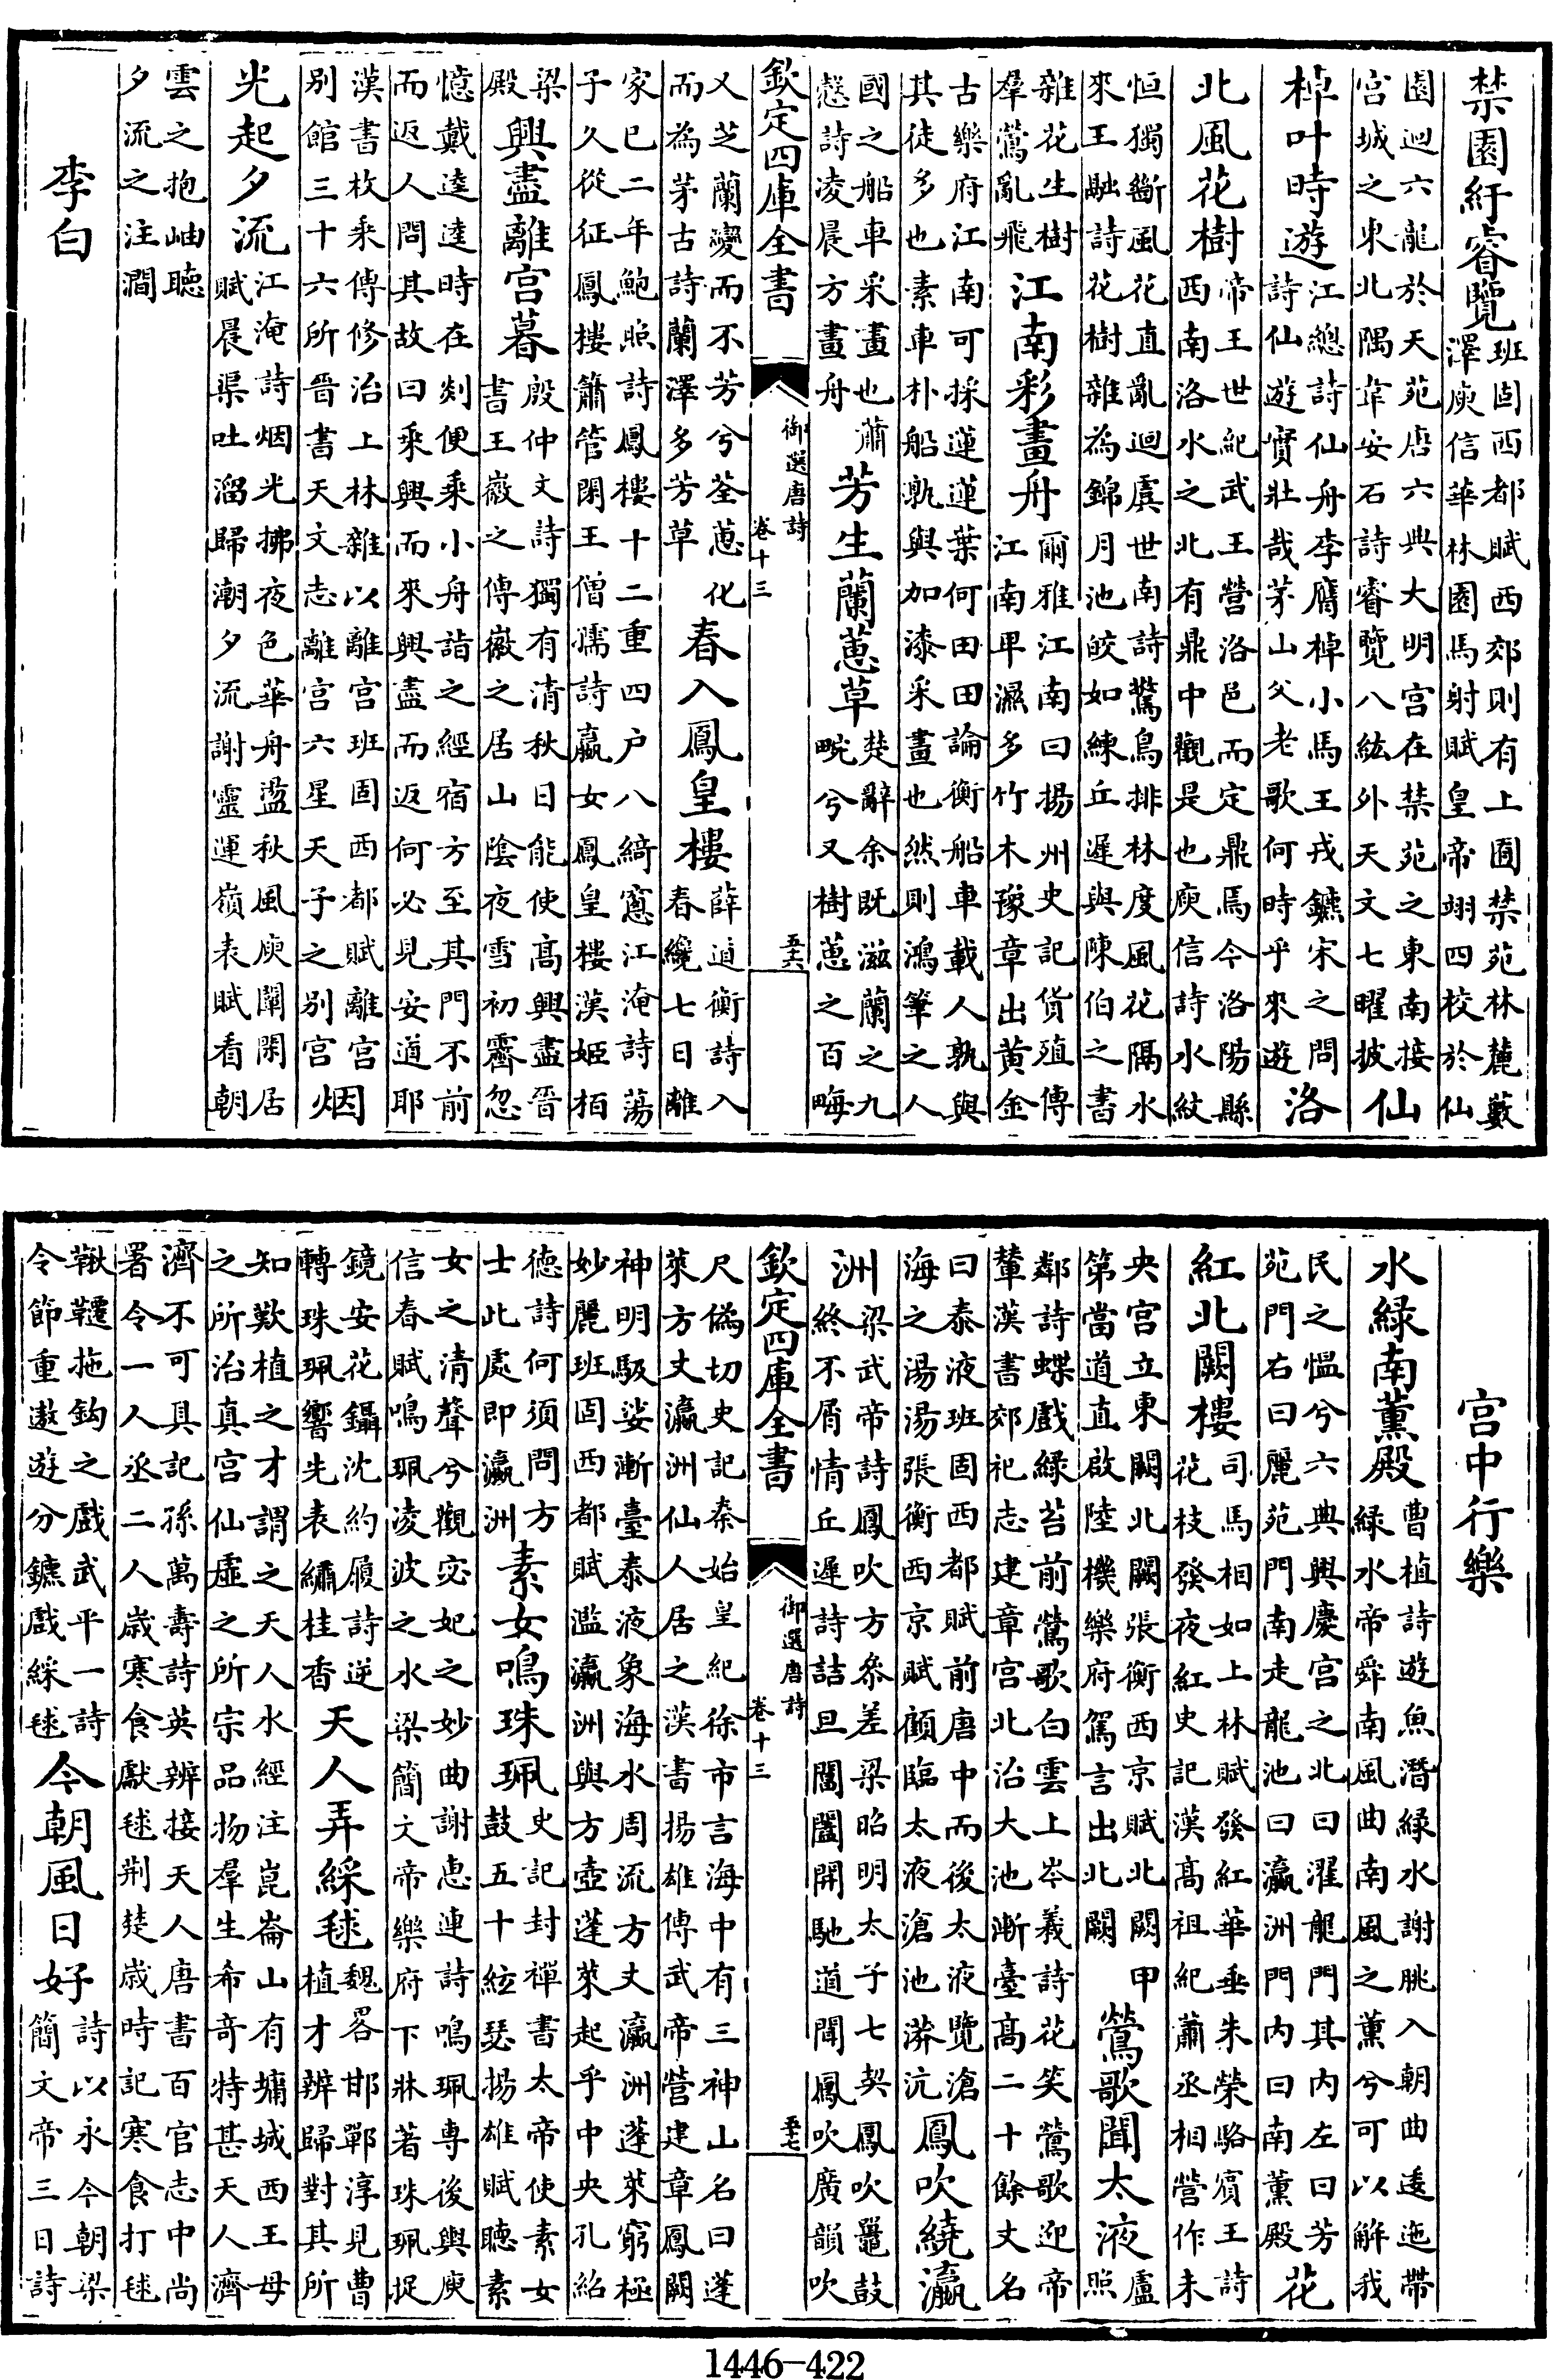 禁園紆睿覽班固西都賦西郊則有上囿禁苑林麓藪
澤庾信華林園馬射賦皇帝翊四校於仙
園迴六龍於天苑唐六典大明宮在禁苑之東南接
宮城之東北隅韋安石詩睿覽八紘外天文七曜披仙
棹叶時遊江總詩仙舟李膺棹小馬王戎鑣宋之問
詩仙遊實壯哉茅山父老歌何時乎來遊洛
北風花樹帝王世紀武王營洛邑而定鼎焉今洛陽縣
西南洛水之北有鼎中觀是也庾信詩水紋
恒獨斷風花直亂迴虞世南詩驚鳥排林度風花隔水
來王融詩花樹雜為錦月池皎如練丘遲與陳伯之書
雜花生樹
羣鶯亂飛江南彩畫舟爾雅江南曰揚州史記貨殖傳
江南卑濕多竹木豫章出黄金
古樂府江南可採蓮蓮葉何田田論衡船車載人孰與
其徒多也素車朴船孰與加漆采畫也然則鴻筆之人
國之船車采畫也蕭
慤詩凌晨方畫舟芳生蘭蕙草楚辭余既滋蘭之九
畹兮又樹蕙之百畮
欽定四庫全書
御選唐詩
卷十三
五十六
又芝蘭變而不芳兮荃蕙化
而為茅古詩蘭澤多芳草春入鳳皇樓薛道衡詩入
春纔七日離
家已二年鮑照詩鳳樓十二重四户八綺窻江淹詩蕩
子久從征鳳樓簫管閑王僧孺詩嬴女鳳皇樓漢姬栢
梁
殿興盡離宮暮殷仲文詩獨有清秋日能使髙興盡晉
書王徽之傳徽之居山陰夜雪初霽忽
憶戴逵逵時在剡便乘小舟詣之經宿方至其門不前
而返人問其故曰乘興而來興盡而返何必見安道耶
漢書枚乘傳修治上林雜以離宮班固西都賦離宮
别館三十六所晉書天文志離宮六星天子之别宮烟
光起夕流江淹詩烟光拂夜色華舟盪秋風庾闡閑居
賦晨渠吐溜歸潮夕流謝靈運嶺表賦看朝
雲之抱岫聽
夕流之注澗
李白
宮中行樂
水緑南薰殿曹植詩遊魚潛緑水謝朓入朝曲逶迤帶
緑水帝舜南風曲南風之薰兮可以解我
民之愠兮六典興慶宮之北曰濯龍門其内左曰芳
苑門右曰麗苑門南走龍池曰瀛洲門内曰南薰殿花
紅北闕樓司馬相如上林賦發紅華垂朱榮駱賓王詩
花枝發夜紅史記漢髙祖紀蕭丞相營作未
央宮立東闕北闕張衡西京賦北闕甲
第當道直啟陸機樂府駕言出北闕鶯歌聞太液盧照
鄰詩蝶戲緑苔前鶯歌白雲上岑羲詩花笑鶯歌迎帝
輦漢書郊祀志建章宮北治大池漸臺髙二十餘丈名
曰泰液班固西都賦前唐中而後太液覽滄
海之湯湯張衡西京賦顧臨太液滄池漭沆鳳吹繞瀛
洲梁武帝詩鳳吹方參差梁昭明太子七契鳳吹鼍鼓
終不屑情丘遲詩詰旦閶闔開馳道聞鳳吹廣韻吹
欽定四庫全書
御選唐詩
卷十三
五十七
尺偽切史記秦始皇紀徐市言海中有三神山名曰蓬
萊方丈瀛洲仙人居之漢書揚雄傳武帝營建章鳳闕
神明馺娑漸臺泰液象海水周流方丈瀛洲蓬萊窮極
妙麗班固西都賦濫瀛洲與方壺蓬萊起乎中央孔紹
德詩何須問方
士此處即瀛洲素女鳴珠珮史記封禪書太帝使素女
鼓五十絃瑟揚雄賦聽素
女之清聲兮觀宓妃之妙曲謝惠連詩鳴珮專後輿庾
信春賦鳴珮凌波之水梁簡文帝樂府下牀著珠珮捉
鏡安花鑷沈約履詩逆
轉珠珮響先表繡桂香天人弄綵毬魏畧邯鄲淳見曹
植才辨歸對其所
知歎植之才謂之天人水經注崑崙山有墉城西王母
之所治真宮仙虛之所宗品物羣生希奇特甚天人濟
濟不可具記孫萬壽詩英辨接天人唐書百官志中尚
署令一人丞二人歲寒食獻毬荆楚歲時記寒食打毬
鞦韆拖鈎之戲武平一詩
令節重遨遊分鑣戲綵毬今朝風日好詩以永今朝梁
簡文帝三日詩
1446-422